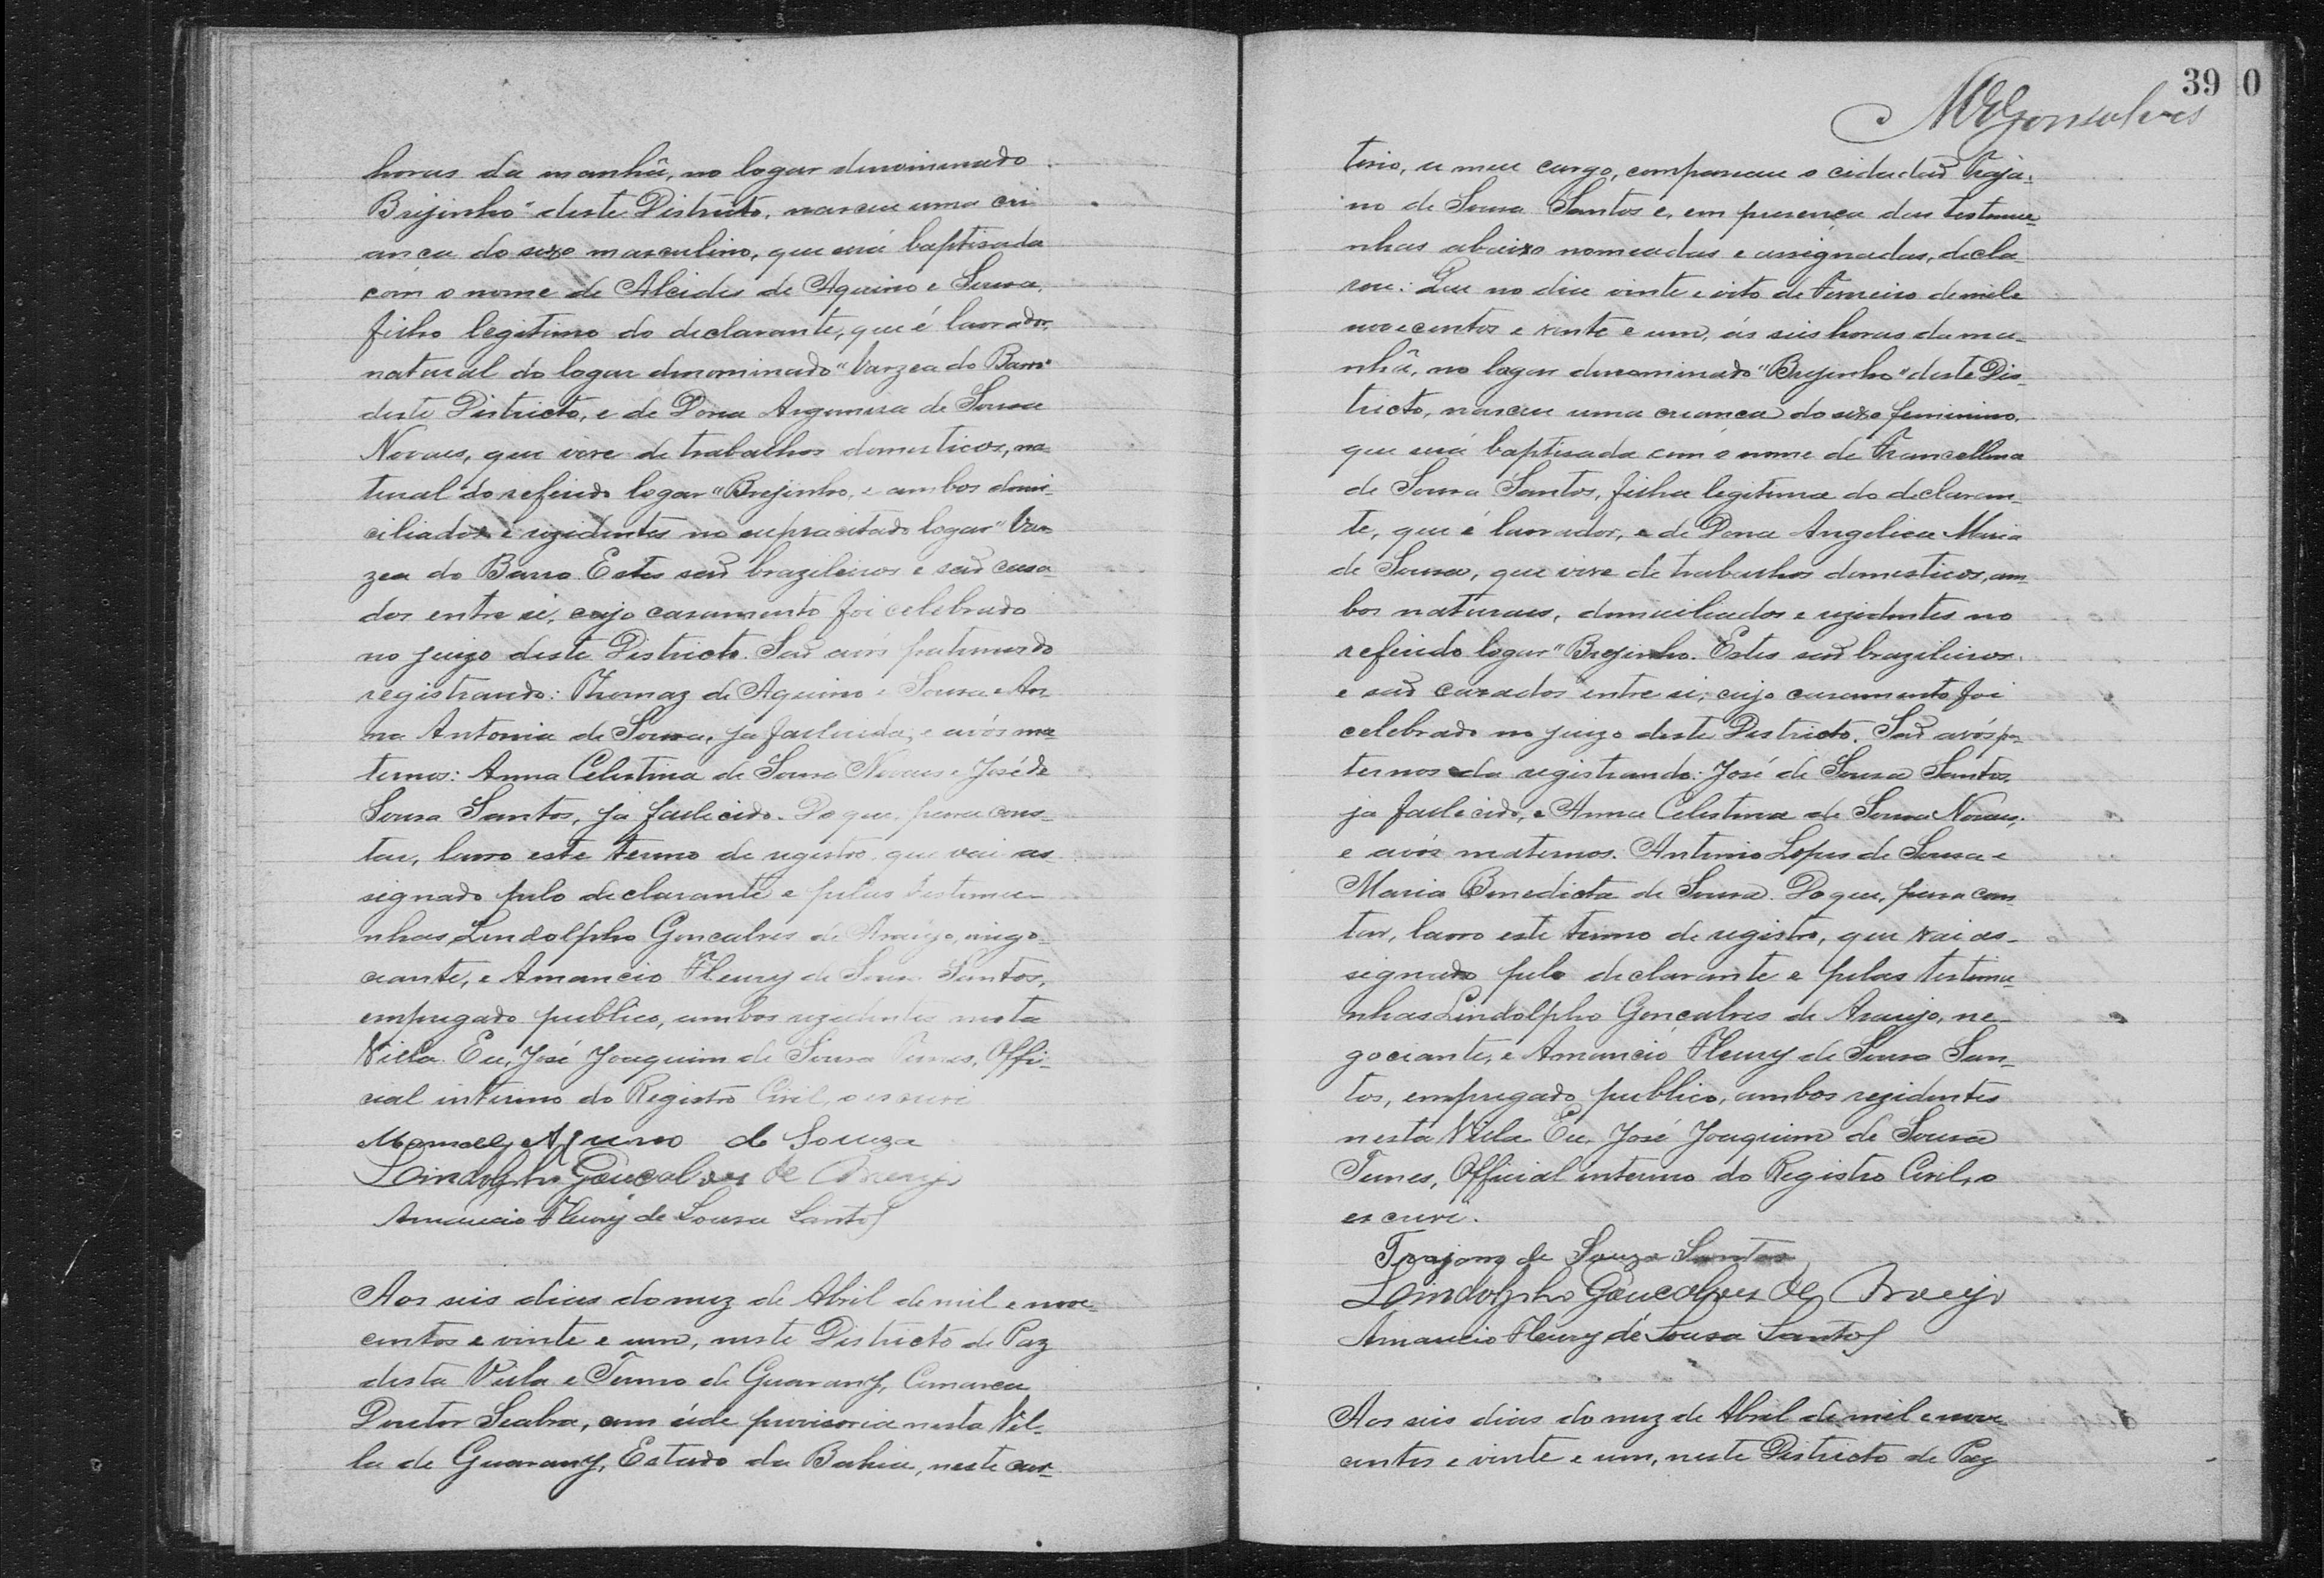 horas da manhã, no logar denominado
Brejinho" deste Districto, nasceu uma cri
ança do sexo masculino, que será baptisada
com o nome de Alcides de Aquino e Sousa,
filho legitimo do declarante, que é lavrador,
natural do logar denominado "Varzea do Barro"
deste Districto, e de Dona Argemira de Sousa
Novaes, que vive de trabalhos domesticos, na-
tural do referido logar "Brejinho, e ambos domi-
ciliados e rezidentes no supracitado logar "Var-
zea do Barro. Estes são brazileiros e são casa-
dos entre si, cujo casamento foi celebrado
no juizo deste Districto. São avós paternos do
registrando: Thomaz de Aquino e Sousa e An-
na Antonia de Sousa, ja fallecida, e avós ma-
ternos: Anna Celestina de Sousa Novaes e José de
Sousa Santos, ja fallecido. Do que, para cons-
tar, lavro este termo de registro, que vai as-
signado pelo declarante e pelas testemu-
nhas, Lindolpho Gonçalves de Araujo, nego-
ciante, e Amancio Fleury de Sousa Santos,
empregado publico, ambos rezidentes nesta
Villa. Eu, José Joaquim de Sousa Tunes, Offi-
cial interino do Registro Civil, o escrevi
Manoel Aquino de Souza
Lindolpho Gonçalves de Araujo
Amancio Fleury de Sousa Santos
Aos seis dias do mez de Abril de mil e nove-
centos e vinte e um, neste Districto de Paz
desta Villa e Termo de Guarany, Comarca
Doutor Seabra, com séde provisoria nesta Vil-
la de Guarany, Estado da Bahia, neste car-
39 0
MEGonsalves
torio, a meu cargo, compareceu o cidadão Traja-
no de Sousa Santos e, em presença das testemu-
nhas abaixo nomeadas e assignadas, decla-
rou: Que no dia vinte e oito de Fevereiro de mil e
novecentos e vinte e um, ás seis horas da ma-
nhã, no logar denominado "Brejinho" deste Dis-
tricto, nasceu uma criança do sexo feminino,
que será baptisada com o nome de Francellina
de Sousa Santos, filha legitima do declaran-
te, que é lavrador, e de Dona Angelica Maria
de Sousa, que vive de trabalhos domesticos, am-
bos naturaes, domiciliados e rezidentes no
referido logar "Brejinho. Estes são brazileiros
e são casados entre si, cujo casamento foi
celebrado no juizo deste Districto. São avós pa-
ternos da registranda: José de Sousa Santos,
ja fallecido, e Anna Celestina de Sousa Novaes,
e avós maternos. Antonio Lopes de Sousa e
Maria Benedicta de Sousa. Do que, para cons
tar, lavro este termo de registro, que vai as-
signado pelo declarante e pelas testemu-
nhas Lindolpho Gonçalves de Araujo, ne-
gociante, e Amancio Fleury de Sousa San-
tos, empregado publico, ambos rezidentes
nesta Villa. Eu, José Joaquim de Sousa
Tunes, Official interino do Registro Civil, o
escrevi.
Trajano de Souza Santos
Lindolpho Gonçalves de Araujo
Amancio Fleury de Sousa Santos
Aos seis dias do mez de Abril de mil e nove
centos e vinte e um, neste Districto de Paz